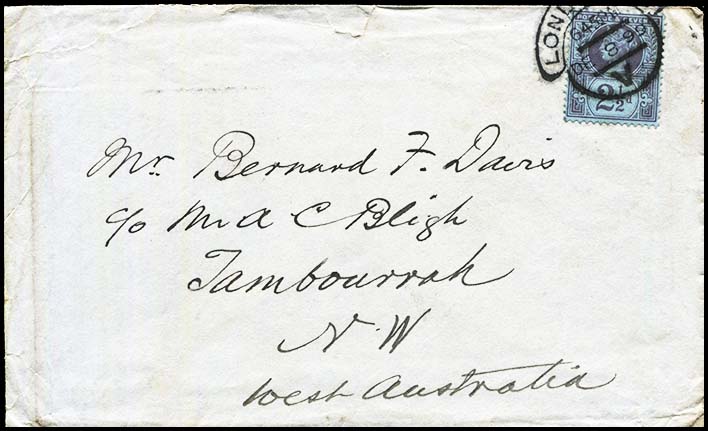 LON
2½d
Mr. Bernard F. Davis
c/o Mr A C Bligh
Tambourrah
N. W
West Australia